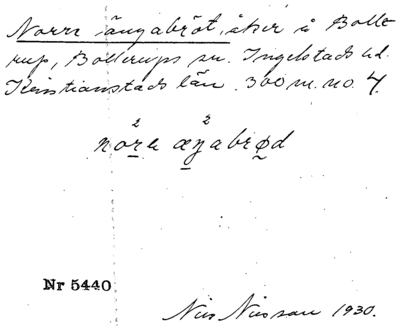 Norre ängabröt, åker å Bolle-
rup, Bollerups sn. Ingelstads hd.
Kristianstads län. 300 m. no. 4.
2 2
nore æŋabrød
Nr 5440
Nils Nilsson 1930.